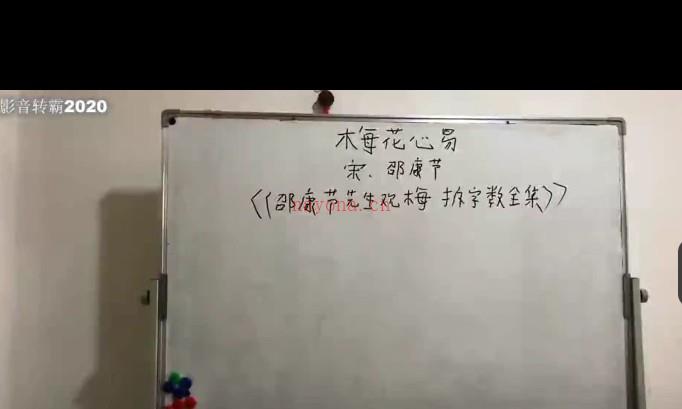 影音转霸2020
梅花心易
宋、邵康节
《邵康节先生观梅 拆字数全集》
nayona.cn